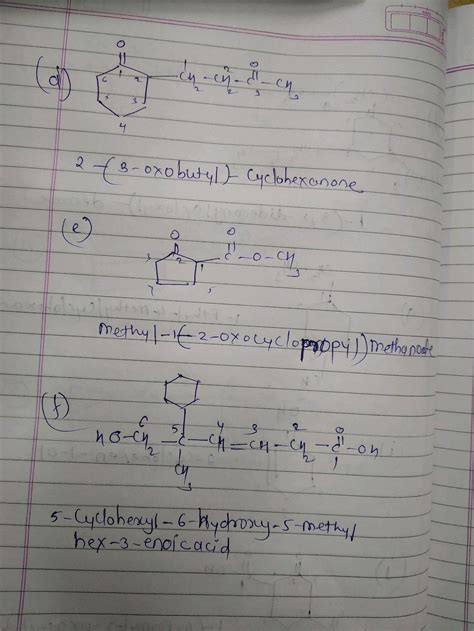 (d)
O
1 2 3 4 5 6
1 CH2 - 2 CH2 - C - 3 CH3
O
2-(3-oxobutyl)-Cyclohexanone
(e)
O O
C-O-CH3
1 2 3
methyl-1(-2-oxocyclopropyl)methanoate
(f)
6 5 4 3 2 O
HO-CH2-C-CH=CH-CH2-C-OH
CH3 1
5-Cyclohexyl-6-Hydroxy-5-methyl
hex-3-enoicacid